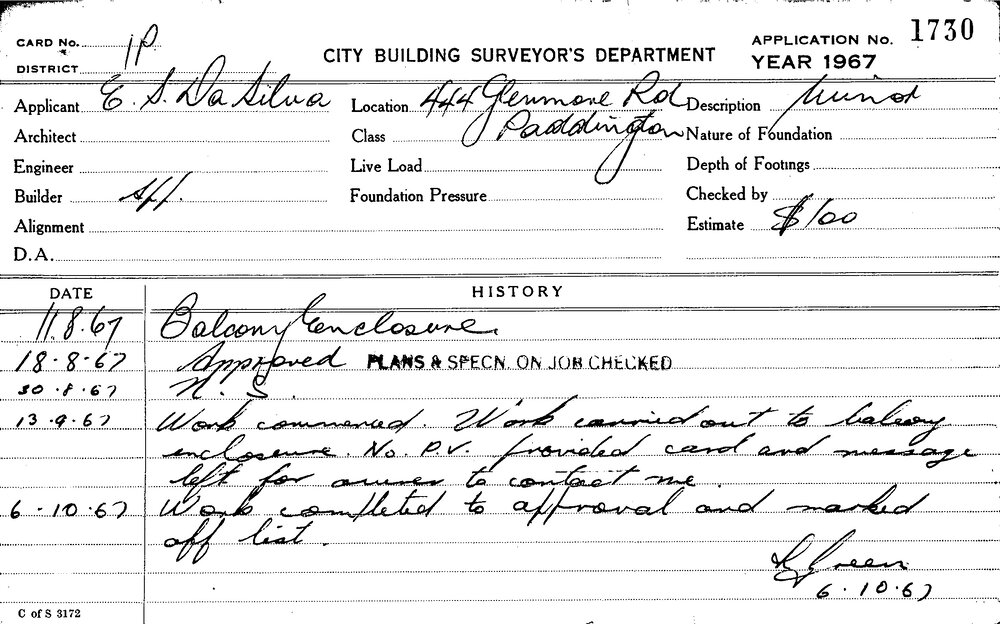 CARD No. 1P
DISTRICT
CITY BUILDING SURVEYOR'S DEPARTMENT
APPLICATION No. 1730
YEAR 1967
Applicant E. S. Da Silva Location 444 Glenmore Rd Description Minor
Architect Class Paddington Nature of Foundation
Engineer Live Load Depth of Footings
Builder Foundation Pressure Checked by
Alignment Estimate $100
D.A.
DATE HISTORY
11.8.67 Balcony Enclosure.
18.8.67 Approved PLANS & SPECN. ON JOB CHECKED
30.8.67 N. S.
13.9.67 Work commenced. Work carried out to balcony
enclosure. No. P.V. provided card and message
left for owner to contact me.
6.10.67 Work completed to approval and marked
off list.
Green
6.10.67
C of S 3172